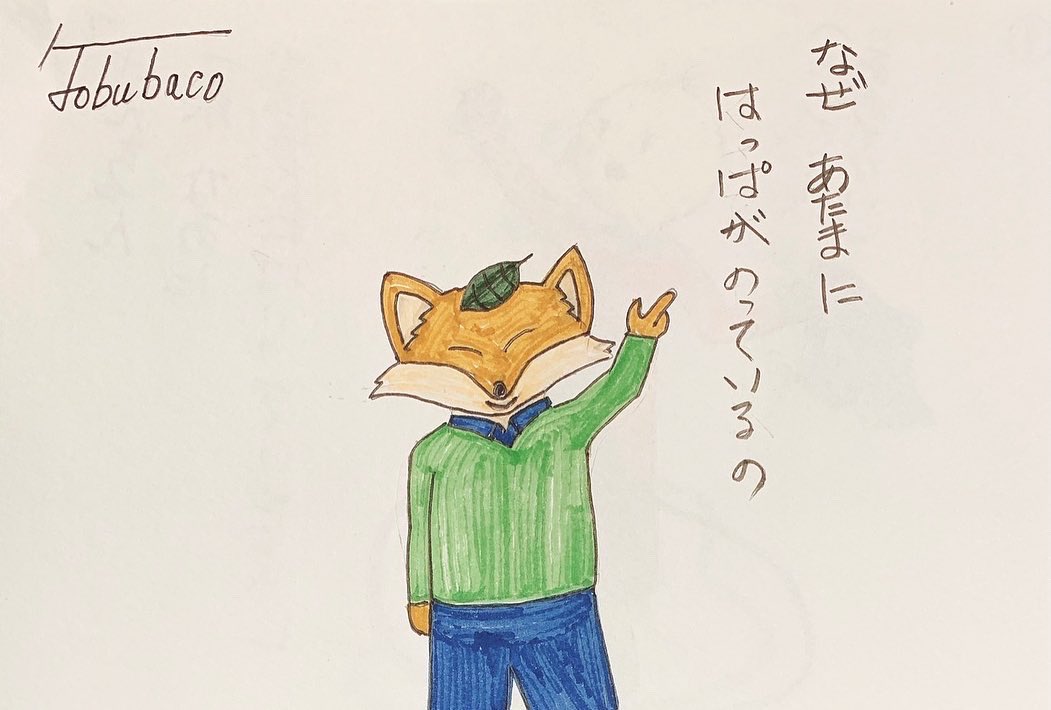 Tobubaco
なぜ あたまに
はっぱがのっているの